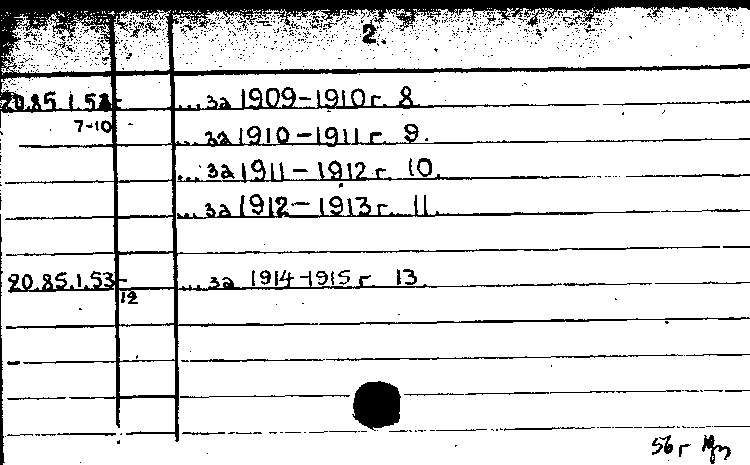 2
20.85.1.53- ... за 1909-1910 г. 8
7-10 ... за 1910-1911 г. 9.
... за 1911-1912 г. 10.
... за 1912-1913 г. 11.
20.85.1.53- ... за 1914-1915 г. 13.
12
56 г